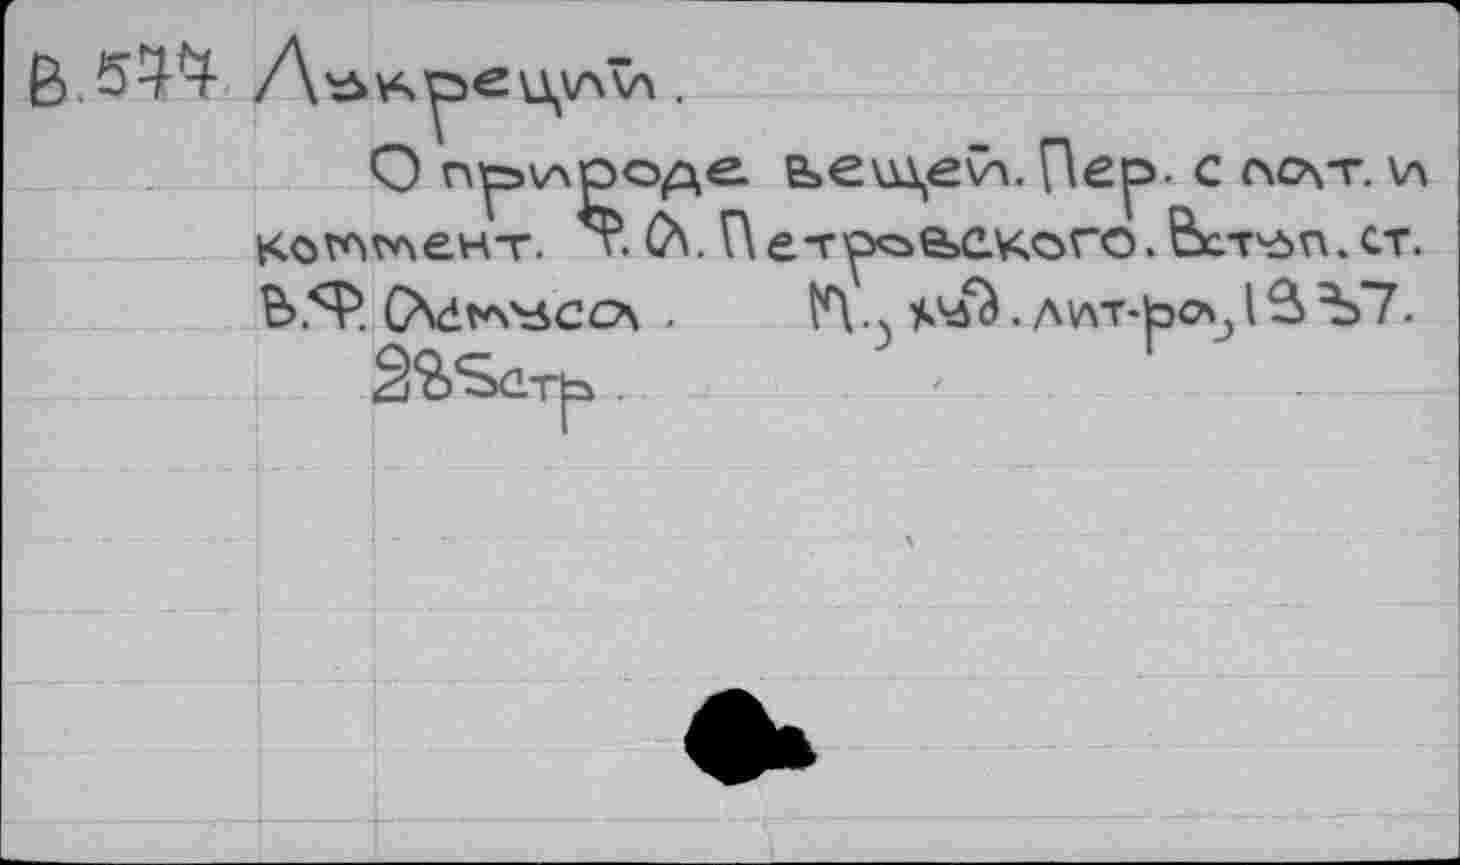 В.544 Лукреций.
О природе вещей. Пер. с лат. и
коммент. Ф.А. Петровского. Вступ. ст.
В.Ф. Асмуса. М., худ. лит-ра, 1937.
285стр.